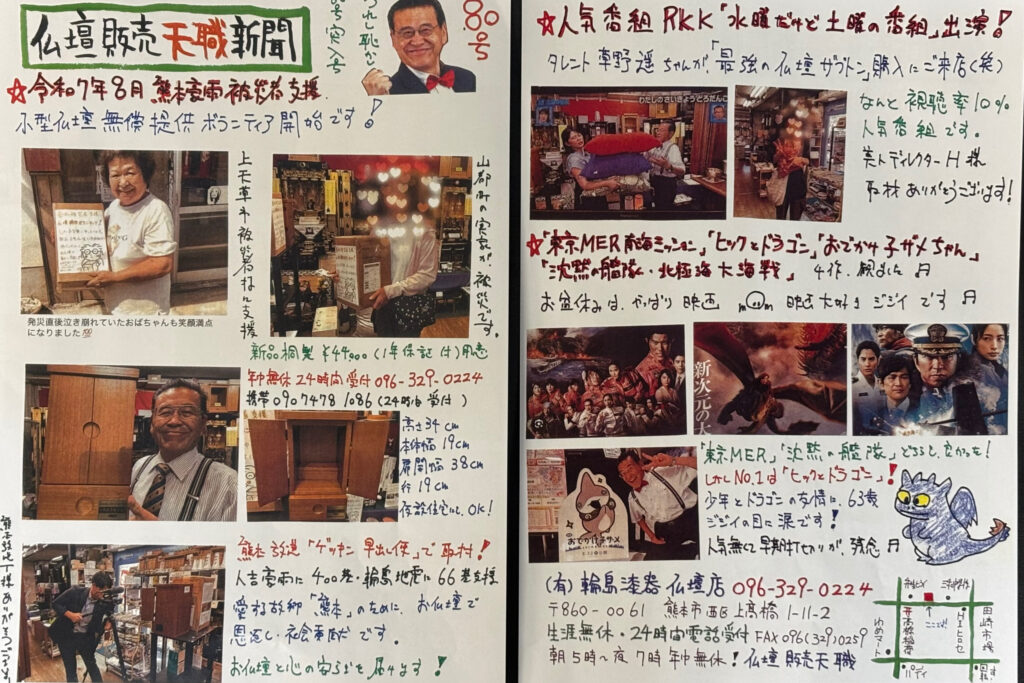 仏壇販売天職新聞
80号
☆令和7年8月 熊本豪雨被災者支援
小型仏壇無償提供ボランティア開始です!
上天草市被災者様に支援
山都町の実家が、被災です。
発災直後泣き崩れていたおばちゃんも笑顔満点
になりました💯
新品桐製 ¥44,000(1年保証付)用意
年中無休24時間受付 096-329-0224
携帯 090 7478 1086 (24時間受付)
高さ34cm
本体幅19cm
扉開幅38cm
行19cm
仮設住宅にも、OK!
熊本放送「ゲツキン早出し便」で取材!
人吉豪雨に400基・輪島地震に66基支援
愛する故郷「熊本」のために、お仏壇で
恩返し・社会貢献です。
お仏壇と心の安らぎを届けます!
☆人気番組RKK「水曜だけど土曜の番組」出演!
タレント草野遥ちゃんが、「最強の仏壇ザブトン」購入にご来店(笑)
わたしのさいきょうどろだんご
なんと視聴率10%
人気番組です。
美人ディレクターH様
取材ありがとうございます!
☆「東京MER南海ミッション」「ヒックとドラゴン」「おでかけ子ザメちゃん」
「沈黙の艦隊・北極海大海戦」4作、観ました♬
お盆休みは、やっぱり映画 映画大好きジジイです♬
新次元の
おでかけ子ザメ
「東京MER」「沈黙の艦隊」どちらも良かった!
しかしNo.1は「ヒックとドラゴン」!
少年とドラゴンの友情に、63歳
ジジイの目に涙です!
人気無くて早期打切りが、残念♬
(有)輪島漆器仏壇店 096-329-0224
〒860-0061 熊本市西区上高橋1-11-2
生涯無休・24時間電話受付 FAX 096(329)0259
朝5時〜夜7時年中無休!仏壇販売天職
ここです!
高橋稲荷
ゆめマート
田崎市場